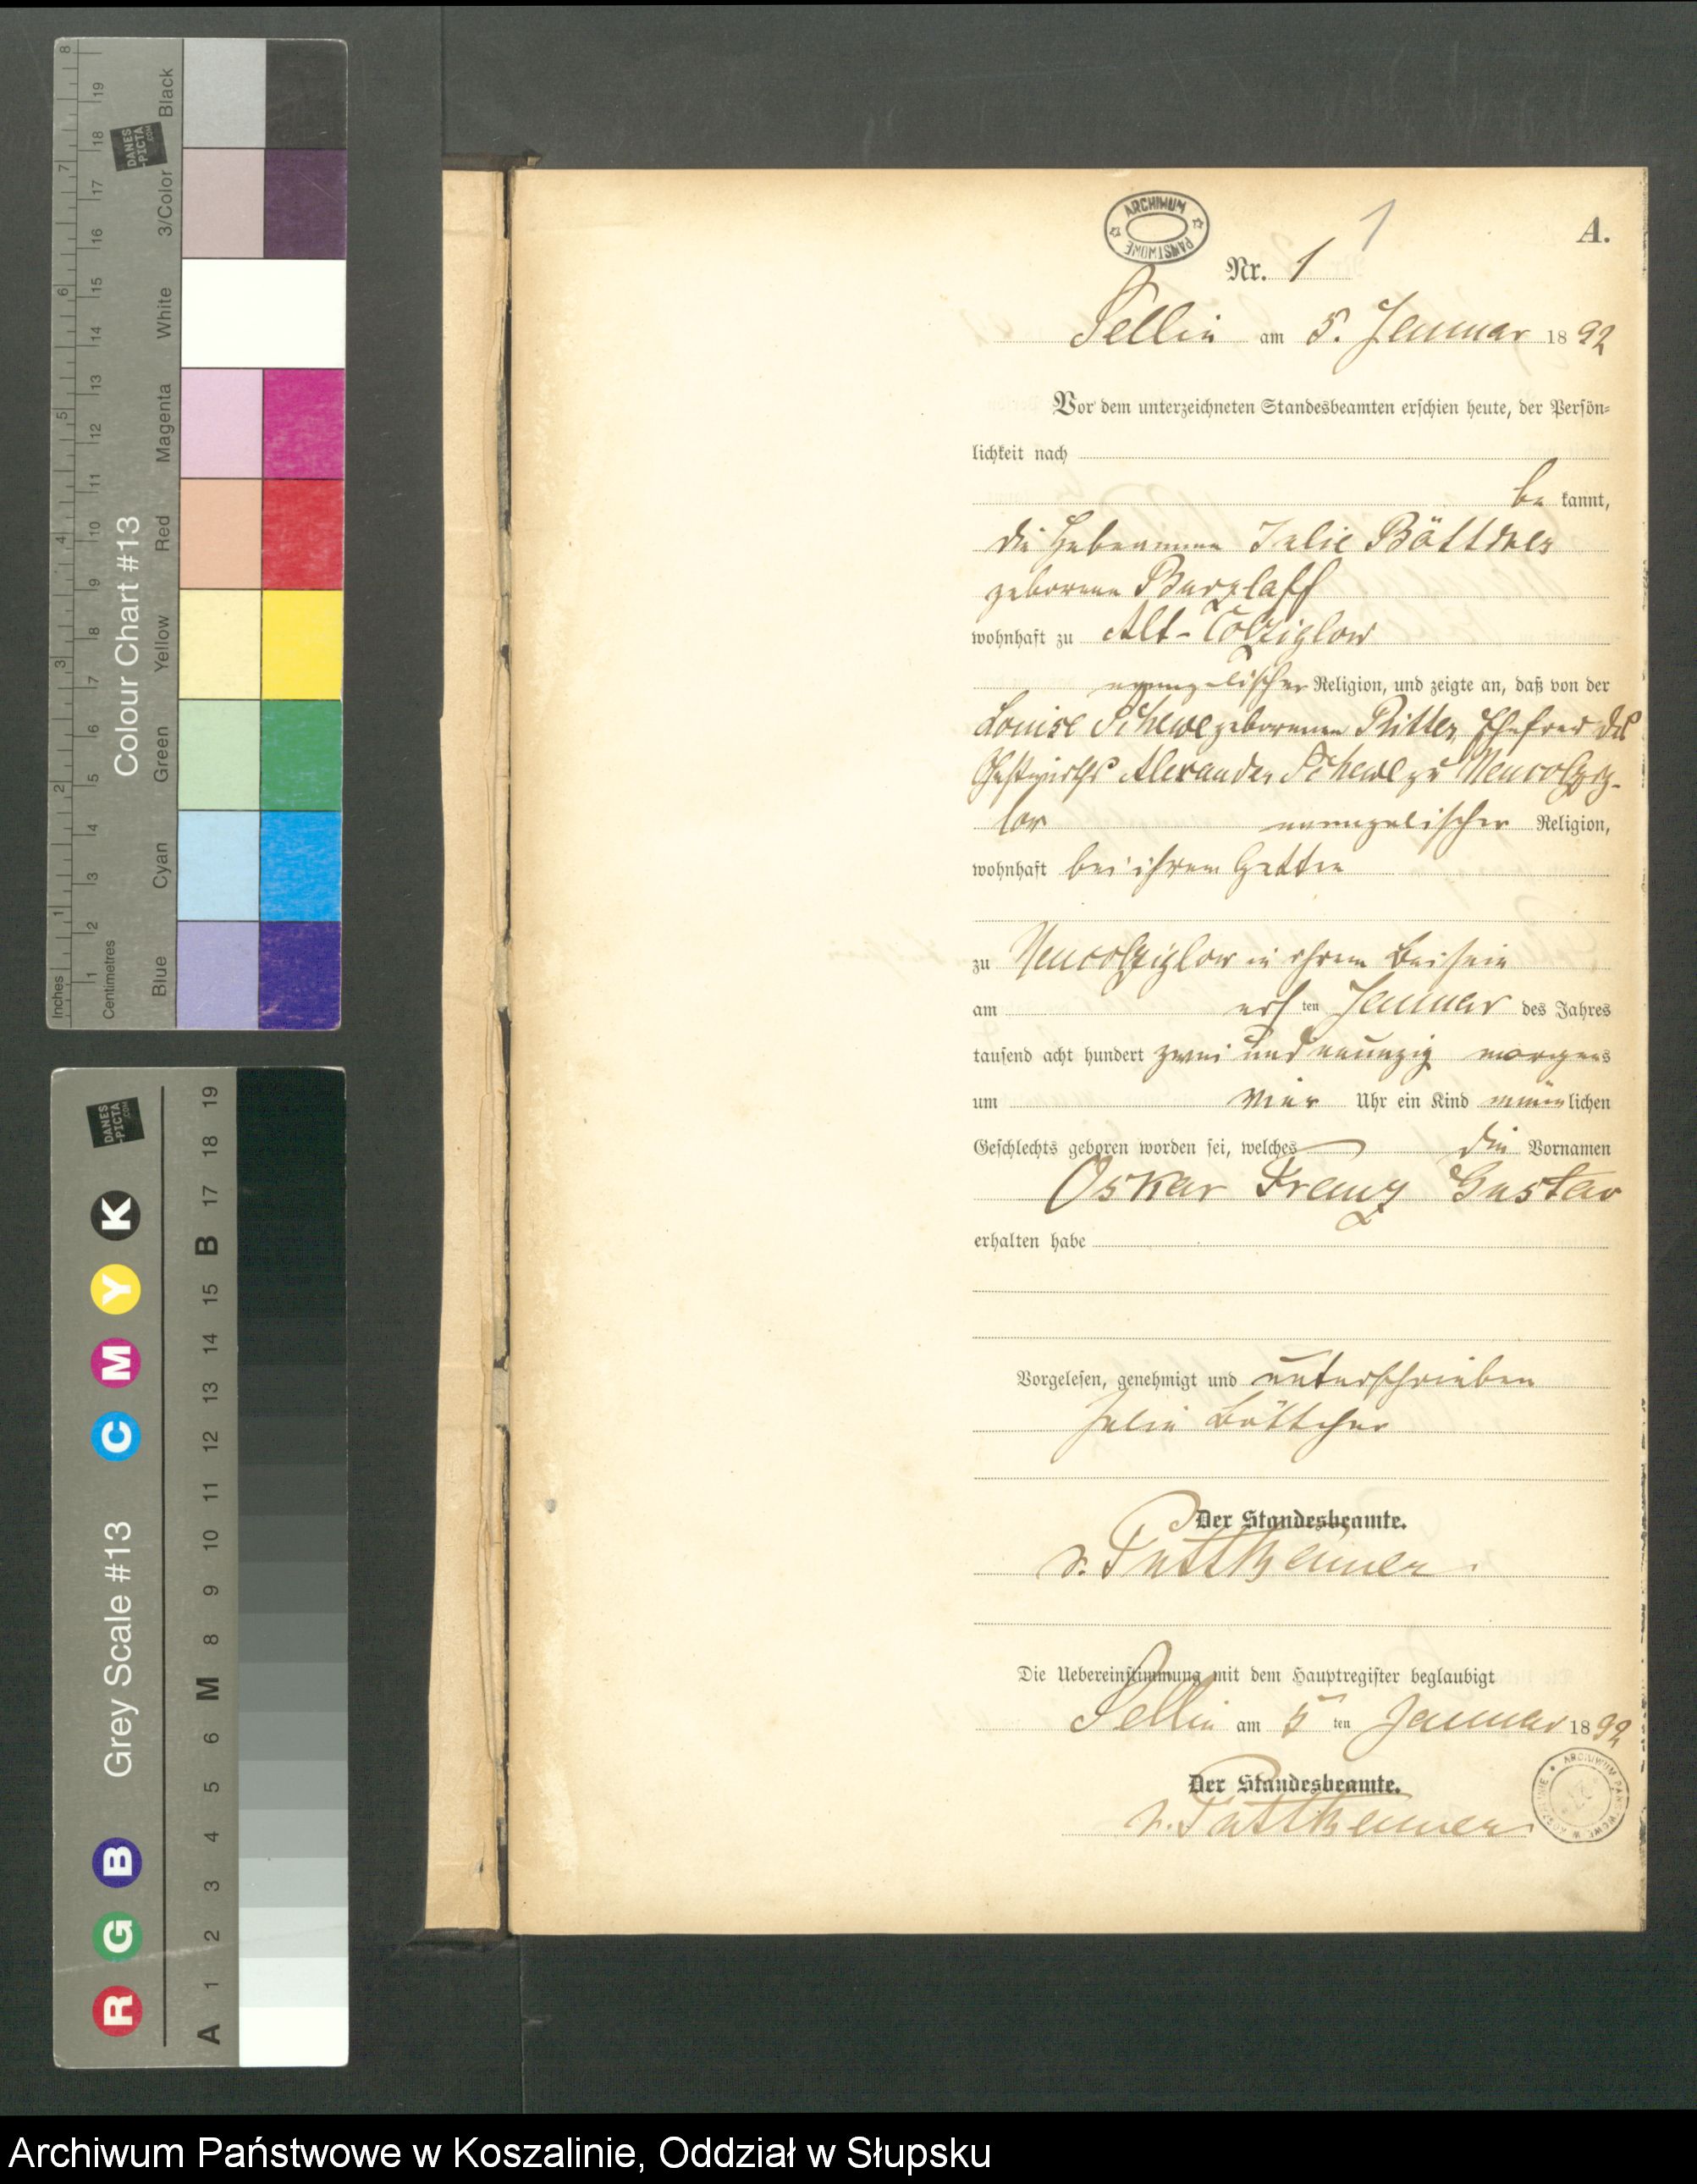 8
19
Black
18
DANES
-PICTA
.COM
7
17
3/Color
16
6
15
White
14
13
Magenta
5
12
11
Colour Chart #13
Red
4
10
9
Yellow
8
3
7
6
Green
5
2
4
Cyan
3
1
2
1
Inches
Centimetres
Blue
DANES
-PICTA
.COM
19
18
17
K
B
Y
15
14
M
13
C
12
11
Grey Scale #13
10
9
8
M
6
5
B
4
3
G
2
R
1
A
ARCHIWUM
PAŃSTWOWE
1
A.
Nr. 1
Sellin am 5. Januar 1892
Vor dem unterzeichneten Standesbeamten erschien heute, der Persön=
lichkeit nach
be kannt,
die Hebeamme Julie Böttcher
geborene Barzlaff
wohnhaft zu Alt-Colziglow
evangelischer Religion, und zeigte an, daß von der
Louise Schewe geborenen Ritter, Ehefrau des
Gastwirths Alexander Schewe zu Neucolzig-
low evangelischer Religion,
wohnhaft bei ihrem Gatten
zu Neucolziglow in ihrem Beisein
am ersten Januar des Jahres
tausend acht hundert zwei und neunzig morgens
um vier Uhr ein Kind männlichen
Geschlechts geboren worden sei, welches die Vornamen
Oskar Franz Gustav
erhalten habe
Vorgelesen, genehmigt und unterschrieben
Julie Böttcher
Der Standesbeamte.
v. Puttkamer
Die Uebereinstimmung mit dem Hauptregister beglaubigt
Sellin am 5ten Januar 1892
Der Standesbeamte.
v. Puttkamer
ARCHIWUM PAŃSTWOWE W KOSZALINIE
Archiwum Państwowe w Koszalinie, Oddział w Słupsku